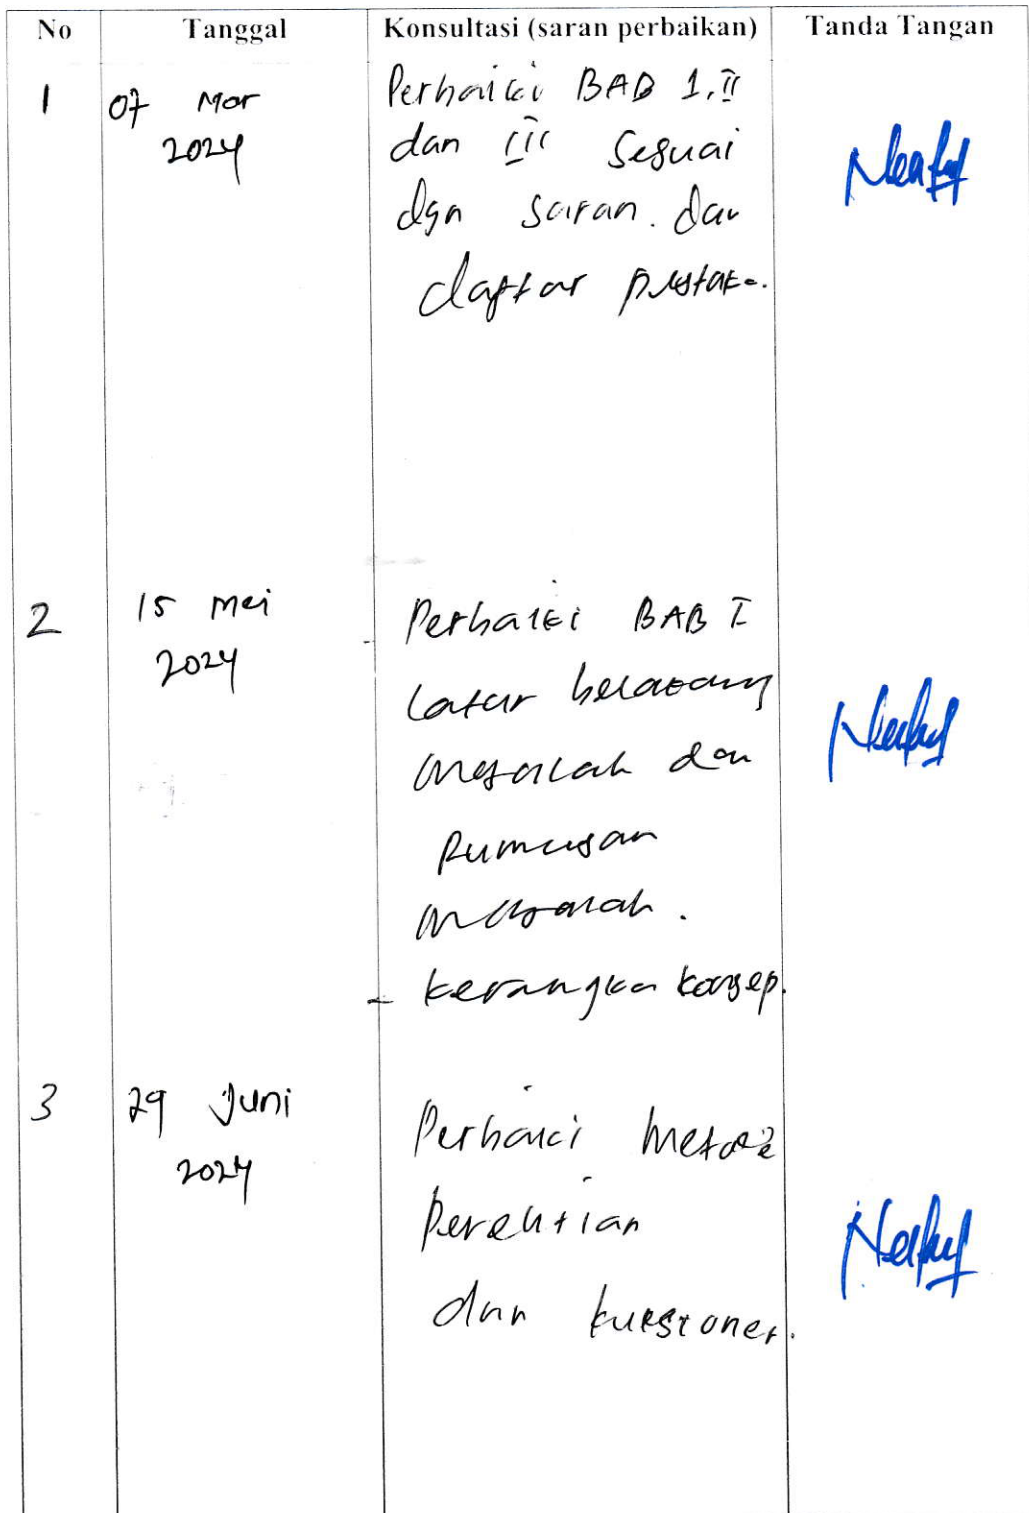 No Tanggal Konsultasi (saran perbaikan) Tanda Tangan
1 07 Mar Perbaiki BAB I, II
2024 dan III Sesuai
dgn saran. dan
daftar pustaka.
2 15 mei - Perbaiki BAB I
2024 latar belakang
masalah dan
Rumusan
masalah.
- kerangka konsep.
3 29 Juni Perbaiki metode
2024 Penelitian
dan kuesioner.